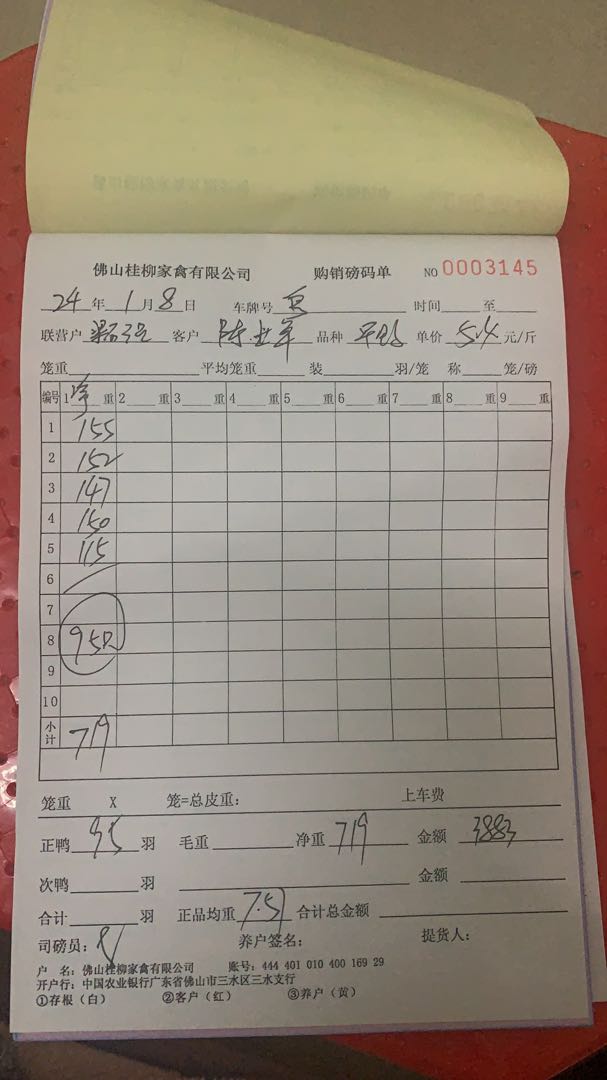 佛山桂柳家禽有限公司 购销磅码单 NO 0003145
24年1月8日 车牌号 时间 至
联营户 客户 陈 军 品种 单价 5.4 元/斤
笼重 平均笼重 装 羽/笼 称 笼/磅
编号 1 净 重 2 重 3 重 4 重 5 重 6 重 7 重 8 重 9 重
1 155
2 152
3 147
4 150
5 115
6
7
8 95只
9
10
小计 719
笼重 X 笼=总皮重: 上车费
正鸭 95 羽 毛重 净重 719 金额 3883
次鸭 羽 金额
合计 羽 正品均重 7.57 合计总金额
司磅员: 养户签名: 提货人:
户 名: 佛山桂柳家禽有限公司 账号: 444 401 010 400 169 29
开户行: 中国农业银行广东省佛山市三水区三水支行
①存根(白) ②客户(红) ③养户(黄)